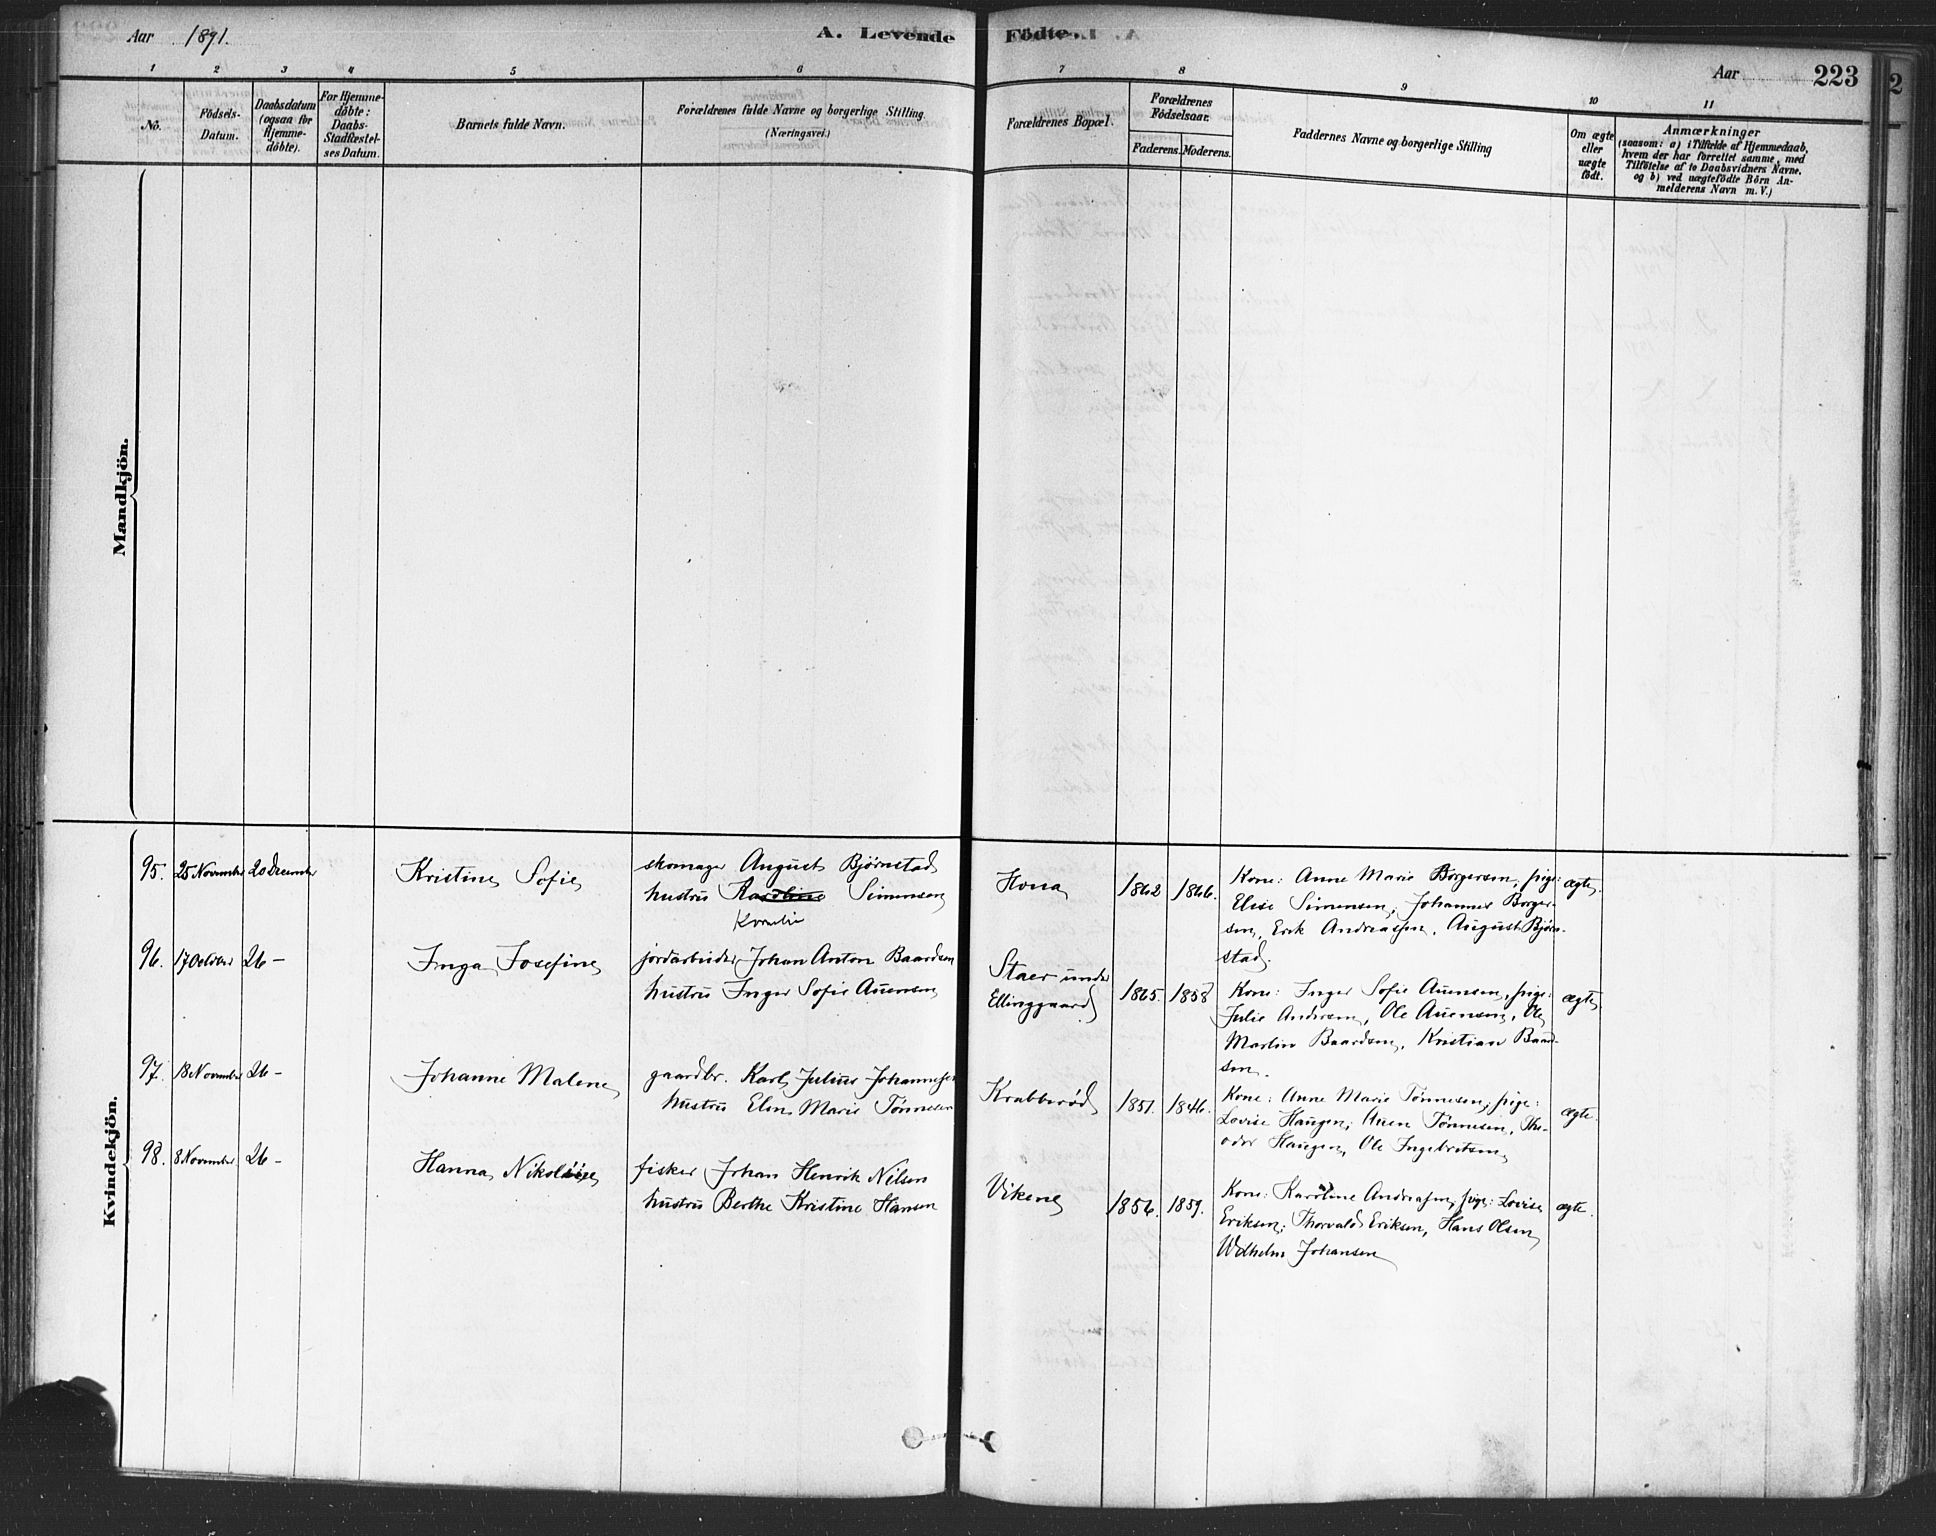 Aar 1891. A. Levende Födte. Aar 223
1 2 3 4 5 6 7 8 9 10 11
No.
Födsels-Datum.
Daabsdatum (ogsaa for Hjemme-döbte).
For Hjemme-döbte: Daabs-Stadfæstel-ses Datum.
Barnets fulde Navn.
Forældrenes fulde Navne og borgerlige Stilling (Næringsvei.)
Forældrenes Bopæl.
Forældrenes Födselsaar.
Faderens. Moderens.
Faddernes Navne og borgerlige Stilling
Om ægte eller uægte födt.
Anmærkninger
(saasom: a) i Tilfælde af Hjemmedaab,
hvem der har forrettet samme, med
Tilföielse af to Daabsvidners Navne.
og b) ved uægtefödte Börn An-
melderens Navn m. V.)
Mandkjön.
Kvindekjön.
95. 25 November 20 December Kristine Sofie
skomager August Bjørnstad
hustru Simensen
Kornelie
1862 1866.
Kone: Anne Marie Borgersen, pige:
Elise Simensen, Johannes Borger-
sen, Erik Andreassen, August Bjørn-
stad.
ægte.
96. 17 October 26 - Inga Josefine
jordarbeider Johan Anton Baardsen
hustru Inger Sofie Auensen
Staer under
Ellinggaard
1865. 1858
Kone: Inger Sofie Auensen, pige:
Julie Andersen, Ole Auensen, Ole
Martin Baardsen, Kristian Baard-
sen.
ægte.
97. 18 November 26 - Johanne Malene
gaardbr. Karl Julius Johannesen
hustru Elen Marie Tønnesen
Krabberød
1851. 1846.
Kone: Anne Marie Tønnesen, pige:
Lovise Haugen, Auen Tønnesen, The-
odor Haugen, Ole Ingebretsen
ægte
98. 8 November 26 - Hanna
fisker Johan Henrik Nilsen
hustru Berthe Kristine Hansen
Vikene
1856. 1859.
Kone: Karoline Andreasen, pige: Lovise
Eriksen, Thorvald Eriksen, Hans Olsen
Wilhelm Johansen
ægte.
2